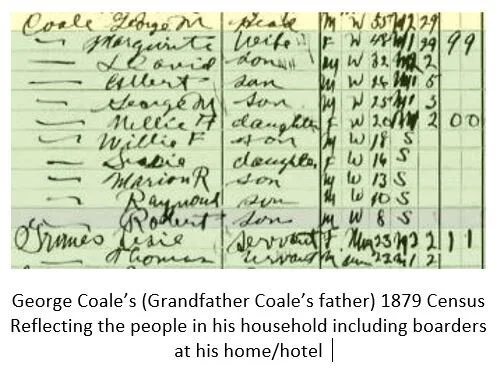 Coale George M Head M W 55 M2 29
— Margurite Wife F W 48 M1 29 9 9
— David son M W 32 M2 2
— Albert son M W 26 M1 5
— George M son M W 25 M1 3
— Nellie H daughter F W 20 M 2 0 0
— Willie F son M W 18 S
— Sadie daughter F W 16 S
— Marion R son M W 13 S
— Raymond son M W 10 S
— Robert son M W 8 S
Grimes servant F 23 M2 2 1 1
— Thomas servant M 2
George Coale’s (Grandfather Coale’s father) 1879 Census
Reflecting the people in his household including boarders
at his home/hotel